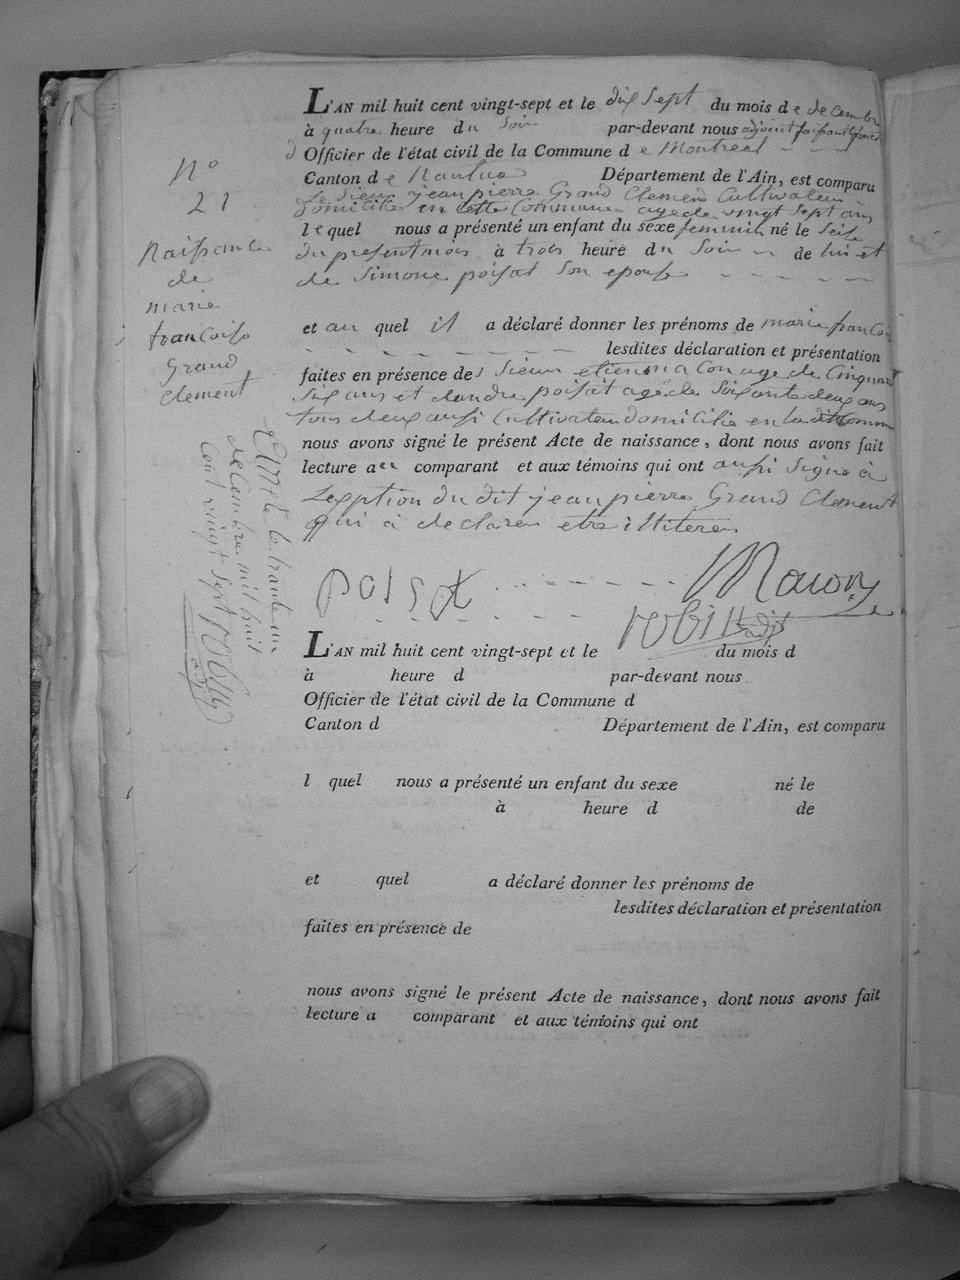 N° 21
Naissance
de
marie
francoise
Grand
Clement
L'AN mil huit cent vingt-sept et le dix sept du mois de decembre
à quatre heure du soir par-devant nous adjoint faisant
d Officier de l'état civil de la Commune de Montreal
Canton de Nantua Département de l'Ain, est comparu
Le sieur jean pierre Grand Clement Cultivateur
domicilié en cette Commune agé de vingt sept ans
lequel nous a présenté un enfant du sexe feminin né le
du present mois à trois heure du soir de lui et
de Simone poisat son epouse
et au quel il a déclaré donner les prénoms de marie francoi
lesdites déclaration et présentation
faites en présence des sieur etienne agé de Cinquant
six ans et claude poisat agé de soixante deux ans
tous deux aussi Cultivateur domicilié en la dit Commun
nous avons signé le présent Acte de naissance, dont nous avons fait
lecture au comparant et aux témoins qui ont aussi signé à
Lexption du dit jean pierre Grand Clement
qui à declaren etre illiteren
poisat
L'AN mil huit cent vingt-sept et le du mois d
à heure d par-devant nous
Officier de l'état civil de la Commune d
Canton d Département de l'Ain, est comparu
l quel nous a présenté un enfant du sexe né le
à heure d de
et quel a déclaré donner les prénoms de
lesdites déclaration et présentation
faites en présence de
nous avons signé le présent Acte de naissance, dont nous avons fait
lecture a comparant et aux témoins qui ont
Arreté le trante un
decembre mil huit
cent vingt sept